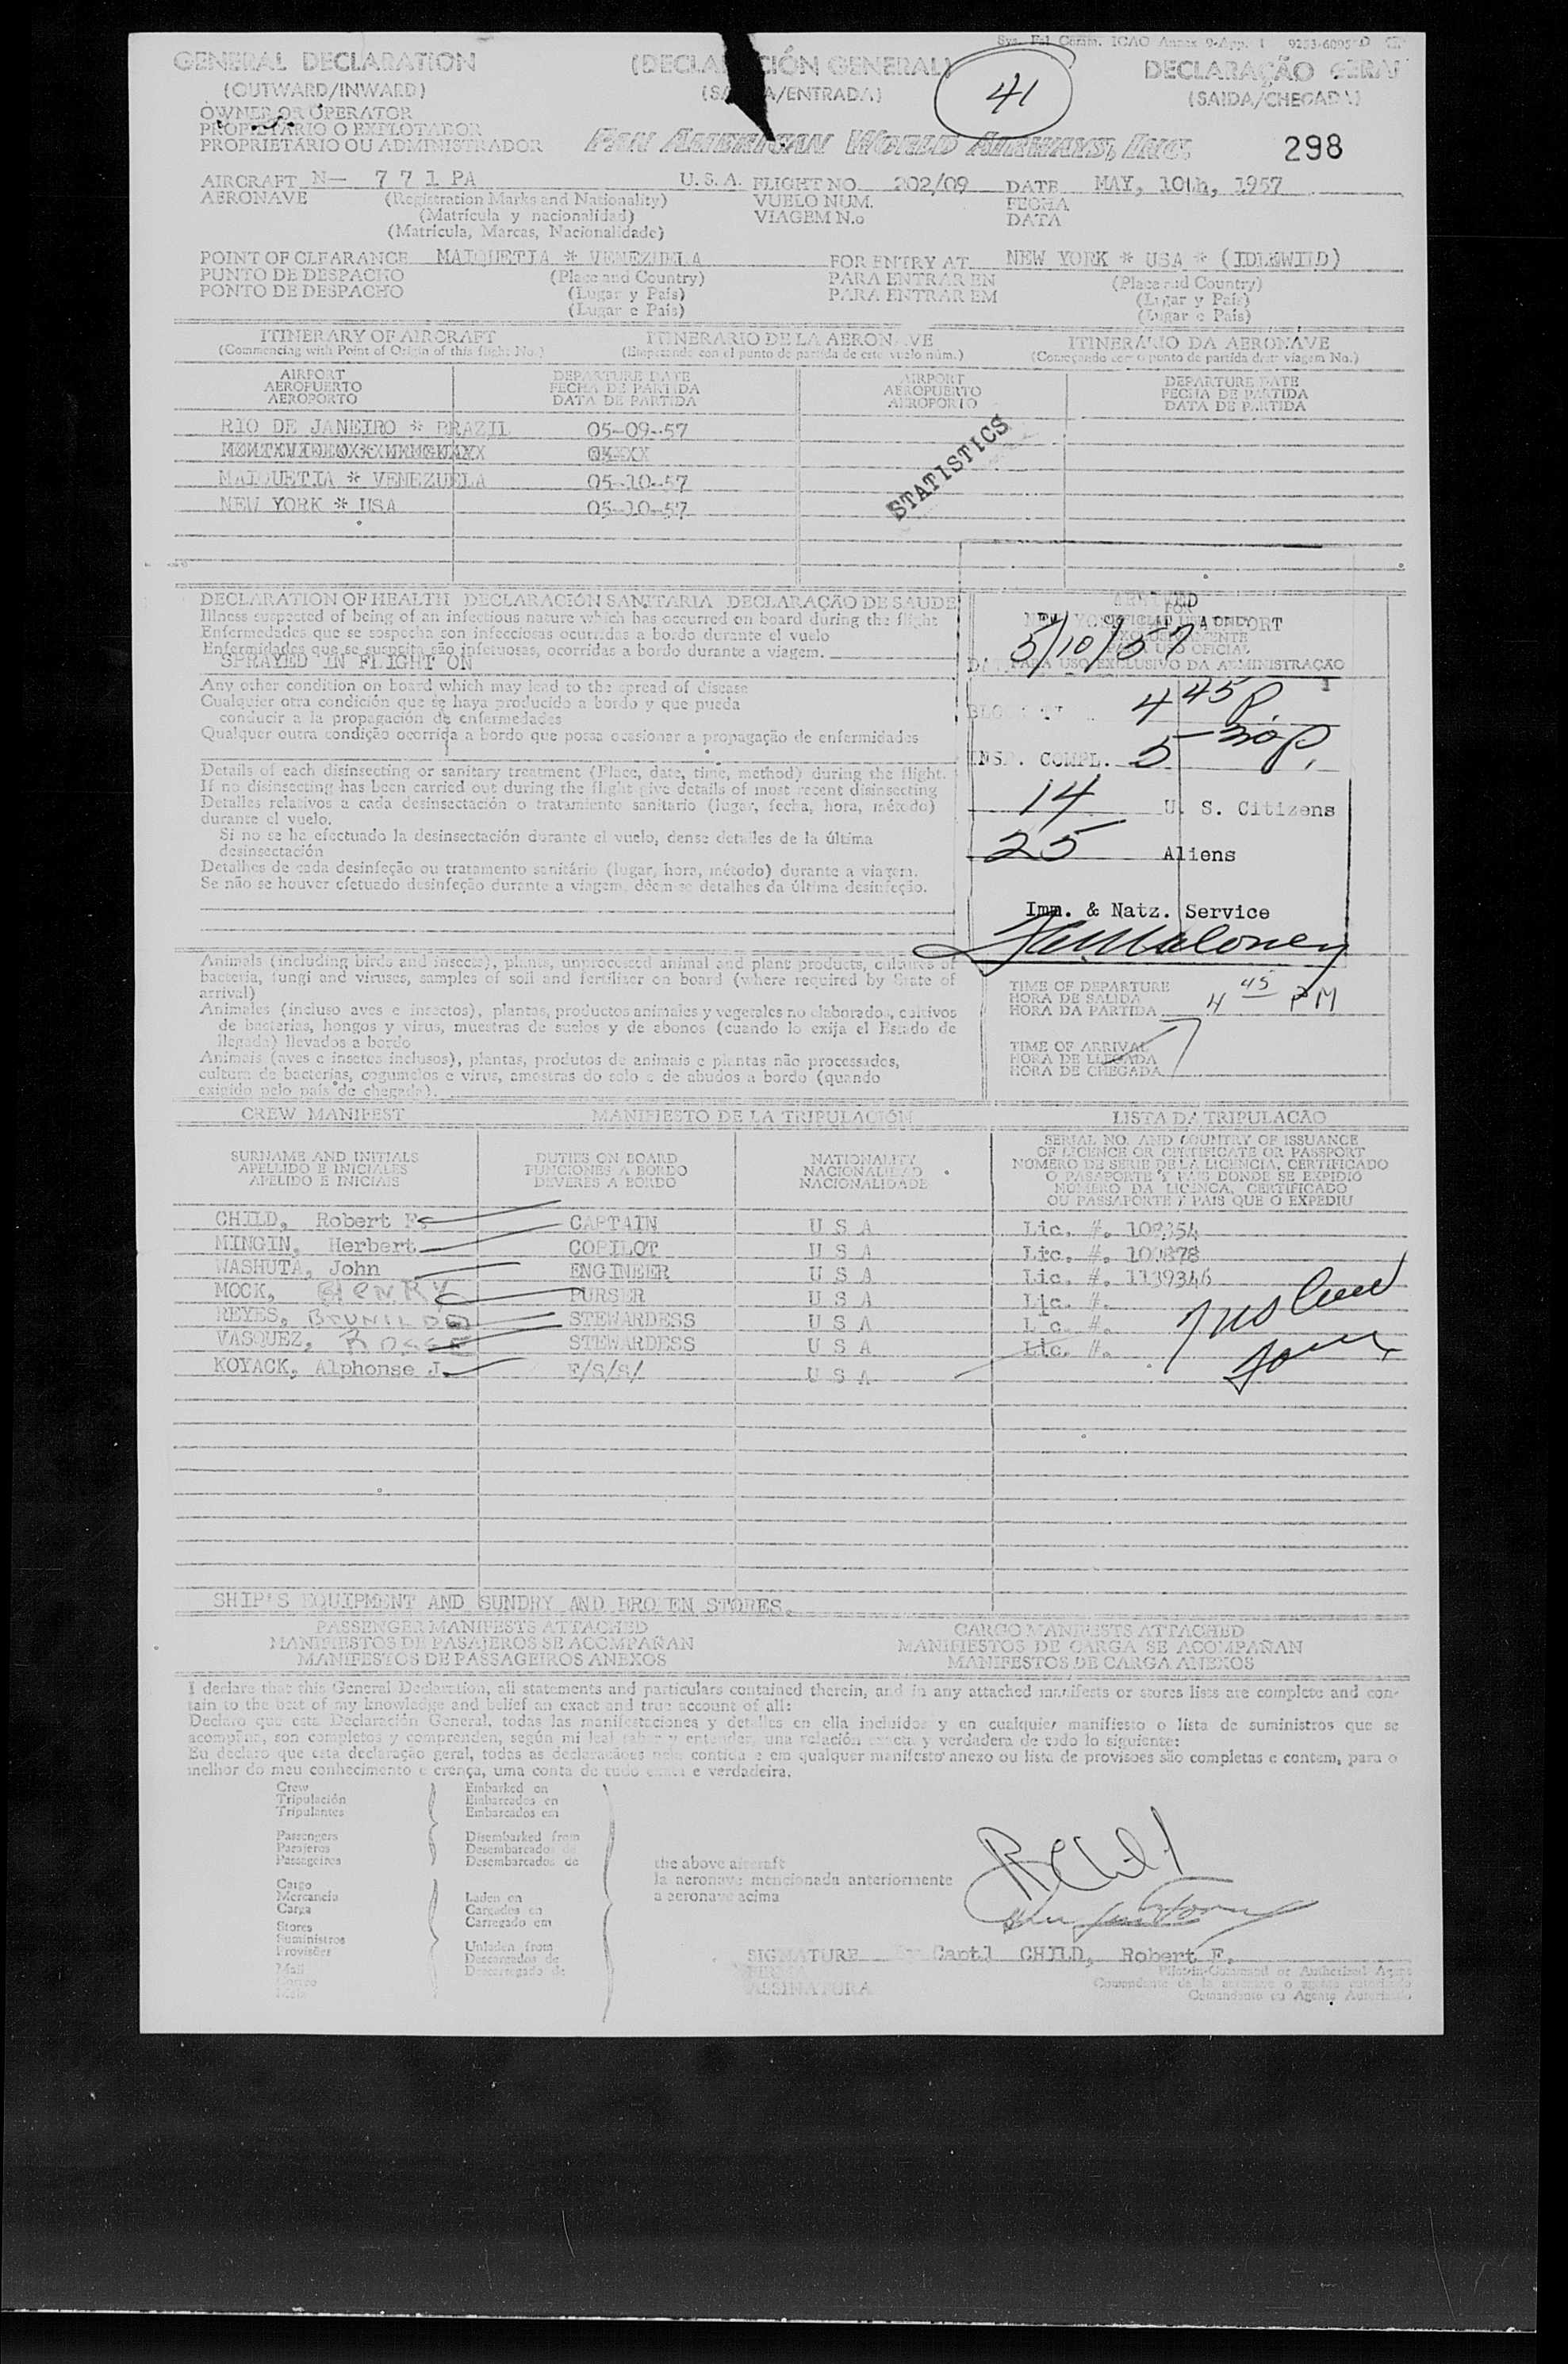 Sys. Fal Comm. ICAO Annex 9-App. 1
GENERAL DECLARATION
(OUTWARD/INWARD)
(DECLA CIÓN GENERAL)
(SA A/ENTRADA)
41
DECLARAÇÃO GERAL
(SAIDA/CHEGADA)
OWNER OR OPERATOR
PROPIETARIO O EXPLOTADOR
PROPRIETÁRIO OU ADMINISTRADOR
PAN AMERICAN WORLD AIRWAYS, INC.
298
AIRCRAFT N— 7 7 1 PA U. S. A. FLIGHT NO 202/09 DATE MAY, 10th, 1957
AERONAVE (Registration Marks and Nationality) VUELO NUM. FECHA
(Matrícula y nacionalidad) VIAGEM N.o DATA
(Matrícula, Marcas, Nacionalidade)
POINT OF CLEARANCE MAIQUETIA * VENEZUELA FOR ENTRY AT NEW YORK * USA * (IDLEWILD)
PUNTO DE DESPACHO (Place and Country) PARA ENTRAR EN (Place and Country)
PONTO DE DESPACHO (Lugar y País) PARA ENTRAR EM (Lugar y País)
(Lugar e País) (Lugar e País)
ITINERARY OF AIRCRAFT ITINERARIO DE LA AERONAVE ITINERÁRIO DA AERONAVE
(Commencing with Point of Origin of this flight No.) (Empezando con el punto de partida de este vuelo núm.) (Começando com o punto de partida desta viagem No.)
AIRPORT DEPARTURE DATE AIRPORT DEPARTURE DATE
AEROPUERTO FECHA DE PARTIDA AEROPUERTO FECHA DE PARTIDA
AEROPORTO DATA DE PARTIDA AEROPORTO DATA DE PARTIDA
RIO DE JANEIRO * BRAZIL 05-09-57
MAIQUETIA * VENEZUELA 05-10-57
NEW YORK * USA 05-10-57
STATISTICS
DECLARATION OF HEALTH DECLARACIÓN SANITARIA DECLARAÇÃO DE SAUDE
Illness suspected of being of an infectious nature which has occurred on board during the flight
Enfermedades que se sospecha son infecciosas ocurridas a bordo durante el vuelo
Enfermidades que se suspeita são infetuosas, ocorridas a bordo durante a viagem.
SPRAYED IN FLIGHT ON
Any other condition on board which may lead to the spread of disease
Cualquier otra condición que se haya producido a bordo y que pueda
conducir a la propagación de enfermedades
Qualquer outra condição ocorrida a bordo que possa ocasionar a propagação de enfermidades
Details of each disinsecting or sanitary treatment (Place, date, time, method) during the flight.
If no disinsecting has been carried out during the flight give details of most recent disinsecting
Detalles relativos a cada desinsectación o tratamiento sanitario (lugar, fecha, hora, método)
durante el vuelo.
Si no se ha efectuado la desinsectación durante el vuelo, dense detalles de la última
desinsectación
Detalhes de cada desinfeção ou tratamento sanitário (lugar, hora, método) durante a viagem.
Se não se houver efetuado desinfeção durante a viagem, dêem-se detalhes da última desinfeção.
ARRIVED
5/10/57
PARA USO EXCLUSIVO DA ADMINISTRAÇÃO
4 45 P.
INSP. COMPL. 5 30 P.
14 U. S. Citizens
25 Aliens
Imm. & Natz. Service
Maloney
Animals (including birds and insects), plants, unprocessed animal and plant products, cultures of
bacteria, fungi and viruses, samples of soil and fertiliser on board (where required by State of
arrival)
Animales (incluso aves e insectos), plantas, productos animales y vegetales no elaborados, cultivos
de bacterias, hongos y virus, muestras de suelos y de abonos (cuando lo exija el Estado de
llegada) llevados a bordo
Animais (aves e insetos inclusos), plantas, produtos de animais e plantas não processados,
cultura de bacterias, cogumelos e virus, amostras do solo e de abudos a bordo (quando
exigido pelo país de chegada).
TIME OF DEPARTURE
HORA DE SALIDA
HORA DA PARTIDA 4 45 PM
TIME OF ARRIVAL
HORA DE LLEGADA
HORA DE CHEGADA
CREW MANIFEST MANIFIESTO DE LA TRIPULACIÓN LISTA DA TRIPULACÃO
SURNAME AND INITIALS DUTIES ON BOARD NATIONALITY
APELLIDO E INICIALES FUNCIONES A BORDO NACIONALIDAD
APELIDO E INICIAIS DEVERES A BORDO NACIONALIDADE
SERIAL NO. AND COUNTRY OF ISSUANCE
OF LICENCE OR CERTIFICATE OR PASSPORT
NÚMERO DE SERIE DE LA LICENCIA, CERTIFICADO
O PASAPORTE Y PAIS DONDE SE EXPIDIÓ
NÚMERO DA LICENCA, CERTIFICADO
OU PASSAPORTE / PAIS QUE O EXPEDIU
CHILD, Robert F. CAPTAIN U S A Lic. #. 108354
MINGIN, Herbert COPILOT U S A Lic. #.
WASHUTA, John ENGINEER U S A Lic. #. 1139346
MOCK, HENRY PURSER U S A Lic. #.
REYES, STEWARDESS U S A Lic. #.
VASQUEZ, STEWARDESS U S A Lic. #.
KOYACK, Alphonse J. F/S/S/ U S A
SHIP'S EQUIPMENT AND SUNDRY AND BROKEN STORES.
PASSENGER MANIFESTS ATTACHED CARGO MANIFESTS ATTACHED
MANIFIESTOS DE PASAJEROS SE ACOMPAÑAN MANIFIESTOS DE CARGA SE ACOMPAÑAN
MANIFESTOS DE PASSAGEIROS ANEXOS MANIFESTOS DE CARGA ANEXOS
I declare that this General Declaration, all statements and particulars contained therein, and in any attached manifests or stores lists are complete and con-
tain to the best of my knowledge and belief an exact and true account of all:
Declaro que esta Declaración General, todas las manifestaciones y detalles en ella incluidos y en cualquier manifiesto o lista de suministros que se
acompañan, son completos y comprenden, según mi leal saber y entender, una relación exacta y verdadera de todo lo siguiente:
Eu declaro que esta declaração geral, todas as declaraçãoes nela contida e em qualquer manifesto anexo ou lista de provisoes são completas e contem, para o
melhor do meu conhecimento e crença, uma conta de tudo exata e verdadeira.
Crew Embarked on
Tripulación Embarcados en
Tripulantes Embarcados em
Passengers Disembarked from
Pasajeros Desembarcados de
Passageiros Desembarcados de
the above aircraft
la aeronave mencionada anteriormente
a aeronave acima
Cargo
Mercancía Laden on
Carga Cargados en
Stores Carregado em
Suministros
Provisões Unladen from
Mail Descargados de
Correo Descarregado de
R Child
SIGNATURE Capt1 CHILD, Robert F.
FIRMA
ASSINATURA
Pilot-in-Command or Authorized Agent
Comandante de la aeronave o agente autorizado
Comandante ou Agente Autorizado